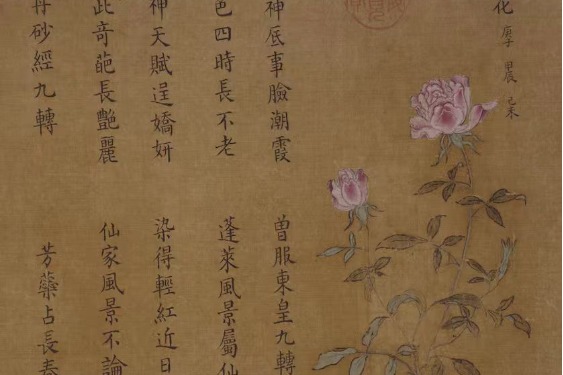 神底事臉潮霞　曾服東皇九轉
色四時長不老　蓬萊風景屬仙
神天賦逞嬌妍　染得輕紅近日
此奇葩長艷麗　仙家風景不論
丹砂經九轉　芳蘂占長春